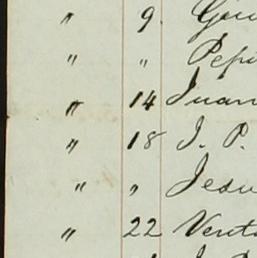 " 9.
" " Pepi
" 14 Juan
" 18 J. P.
" " Jesu
" 22 Vent